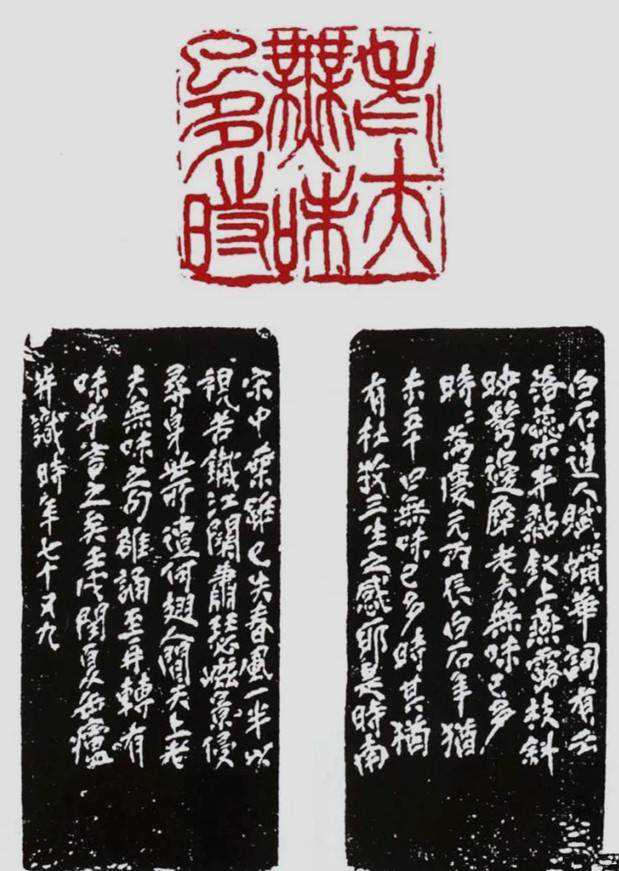 老夫
無味
已多時
白石道人賦蠟華詞有云
落蕊半黏釵上燕露枝斜
映鬢邊犀老夫無味已多
時〻為慶元丙辰白石年猶
未五十曰無味已多時其猶
有杜牧三生之感耶是時南
宋中雖已失春風一半以
視苦鐵江關蕭瑟景侵
尋身世所遭何翅人間天上老
夫無味之句雒誦至再轉有
味乎言之矣壬戌閏夏缶廬
并識時年七十又九